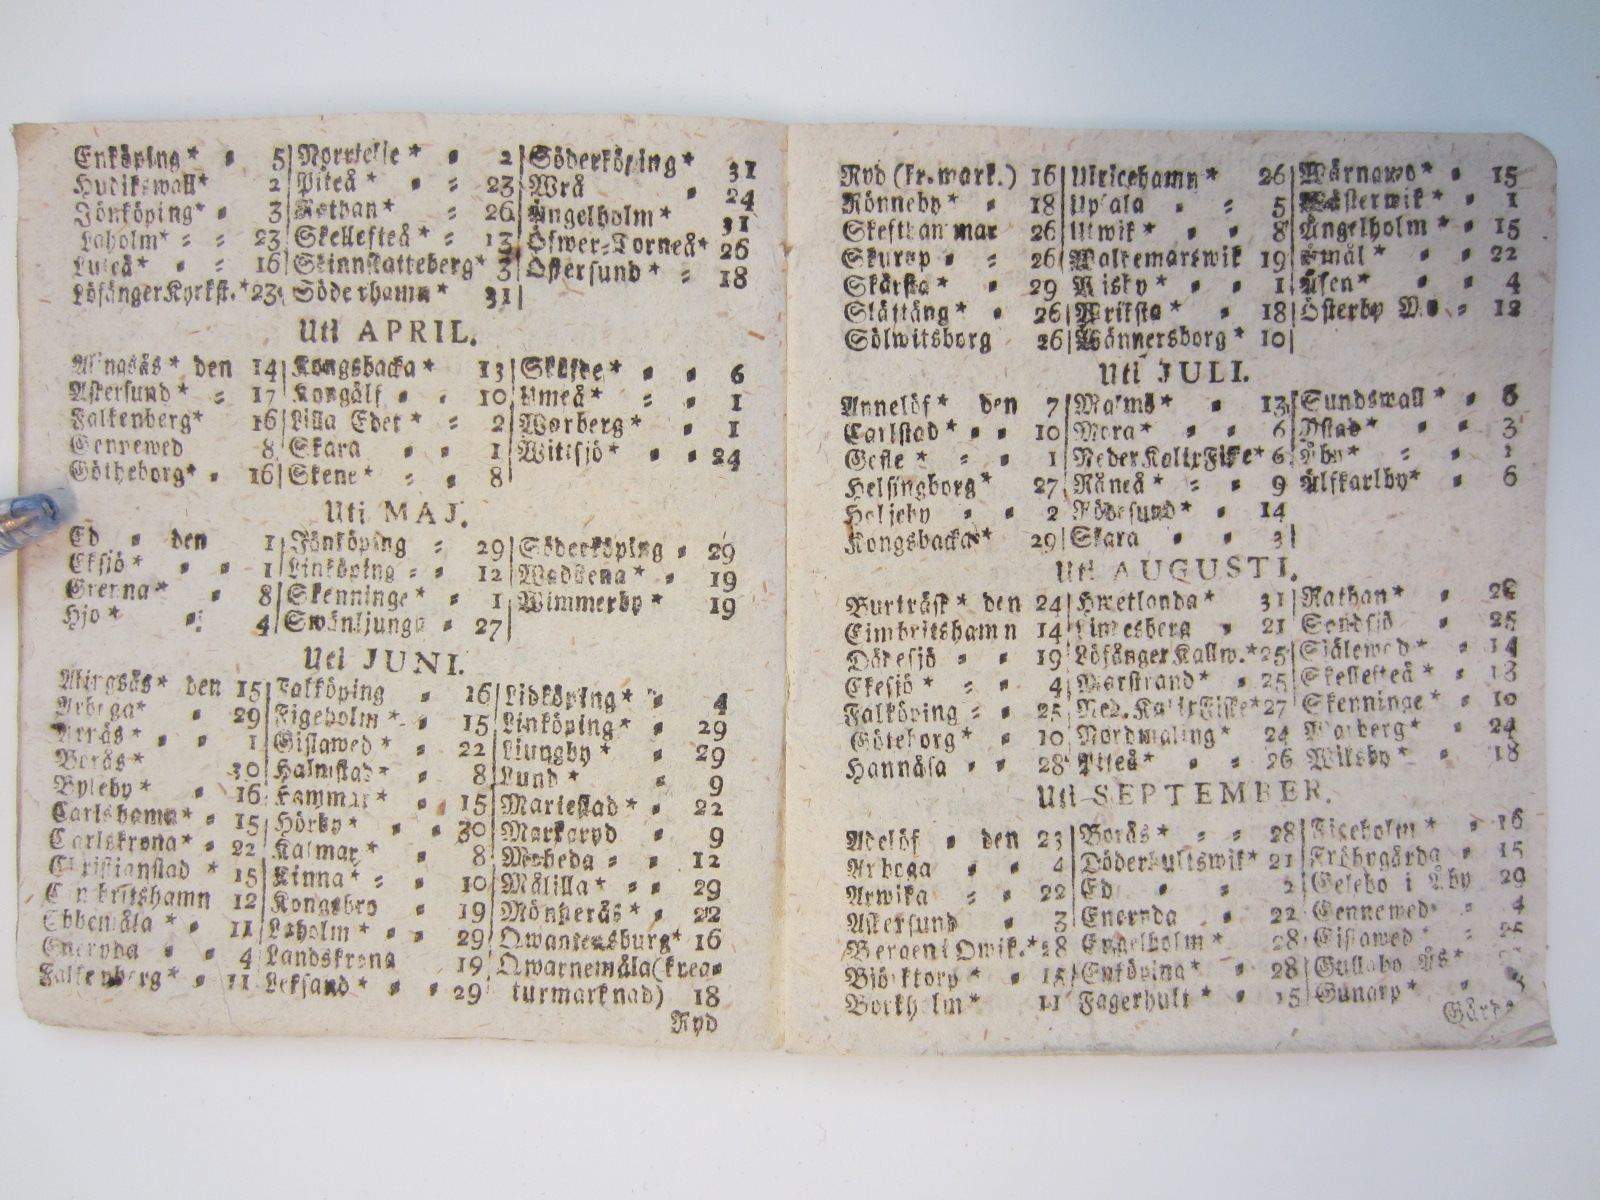 Enköping * 5
Hudikswall* 2
Jönköping* 3
Laholm* 23
Luleå* 16
Löfånger Kyrkst.* 23
Norrtelje * 2
Piteå * 23
Rathan* 26
Skellefteå * 13
Skinnskatteberg* 3
Söderhamn* 31
Söderköping* 31
Wrå 24
Ängelholm* 31
Öfwer-Torneå* 26
Östersund * 18
Uti APRIL.
Alingsås * den 14
Askersund * 17
Falkenberg* 16
Gennewed 8
Götheborg* 16
Kongsbacka * 13
Kongälf 10
Lilla Edet * 2
Skara 1
Skene* 8
Sköfde* 6
Umeå* 1
Warberg* 1
Wittsjö* 24
Uti MAJ.
Ed den 1
Eksjö* 1
Grenna* 8
Hjo * 4
Jönköping 29
Linköping 12
Skenninge* 1
Swänljunga 27
Söderköping 29
Wadstena* 19
Wimmerby* 19
Uti JUNI.
Alingsås* den 15
Arboga* 29
Arrås* 1
Borås* 30
Byleby* 16
Carlshamn* 15
Carlskrona* 22
Christianstad * 15
Cimbritshamn 12
Ebbemåla * 11
Eneryda 4
Falkenberg* 11
Falköping 16
Figeholm* 15
Gislawed* 22
Halmstad* 8
Hammar* 15
Hörby* 30
Kalmar* 8
Kinna* 10
Kongsbro 19
Laholm* 29
Landskrona 19
Leksand* 29
Lidköping* 4
Linköping* 29
Ljungby * 29
Lund * 9
Mariestad* 22
Markaryd 9
Moheda 12
Målilla* 29
Mönsterås* 22
Qwantensburg* 16
Qwarnemåla (krea-
turmarknad) 18
Ryd
Ryd (kr. mark.) 16
Rönneby* 18
Skefthammar 26
Skurup 26
Skärsta* 29
Slättäng* 26
Sölwitsborg 26
Ulricehamn* 26
Upsala 5
Utwik* 8
Waldemarswik 19
Wisby* 1
Wriksta* 18
Wännersborg* 10
Wärnawo* 15
Wästerwik* 1
Ängelholm * 15
Åmål * 22
Åsen* 4
Österby 12
Uti JULI.
Annelöf* den 7
Carlstad* 10
Gefle * 1
Helsingborg* 27
Heljeby 2
Kongsbacka* 29
Malmö* 13
Mora* 6
Neder Kalix Fiske* 6
Råneå* 9
Rödesund* 14
Skara 3
Sundswall* 6
Ystad* 3
Åby*
Älfkarlby* 6
Uti AUGUSTI.
Burträsk* den 24
Cimbritshamn 14
Dädesjö 19
Ekesjö* 4
Falköping 25
Göteborg* 10
Hannäsa 28
Hwetlanda* 31
Limesberg 21
Löfånger Kallw.* 25
Marstrand* 25
Ned. Kalix Fiske* 27
Nordmaling* 24
Piteå* 26
Rathan*
Sandsjö 25
Själewed* 14
Skellefteå* 18
Skenninge* 10
Warberg* 24
Wilsby* 18
Uti SEPTEMBER.
Adelöf den 23
Arboga 4
Arwika 22
Askersund 3
Bergens Qwik.* 28
Björktorp* 15
Borkholm* 11
Borås* 28
Döderhultswik* 21
Ed 2
Eneryda 22
Engelholm* 28
Enköping* 28
Fagerhult* 15
Figeholm* 16
Fröbygårda 15
Gelebo i Åby 29
Gennewed 4
Gislawed*
Gullabo Ås*
Gunarp*